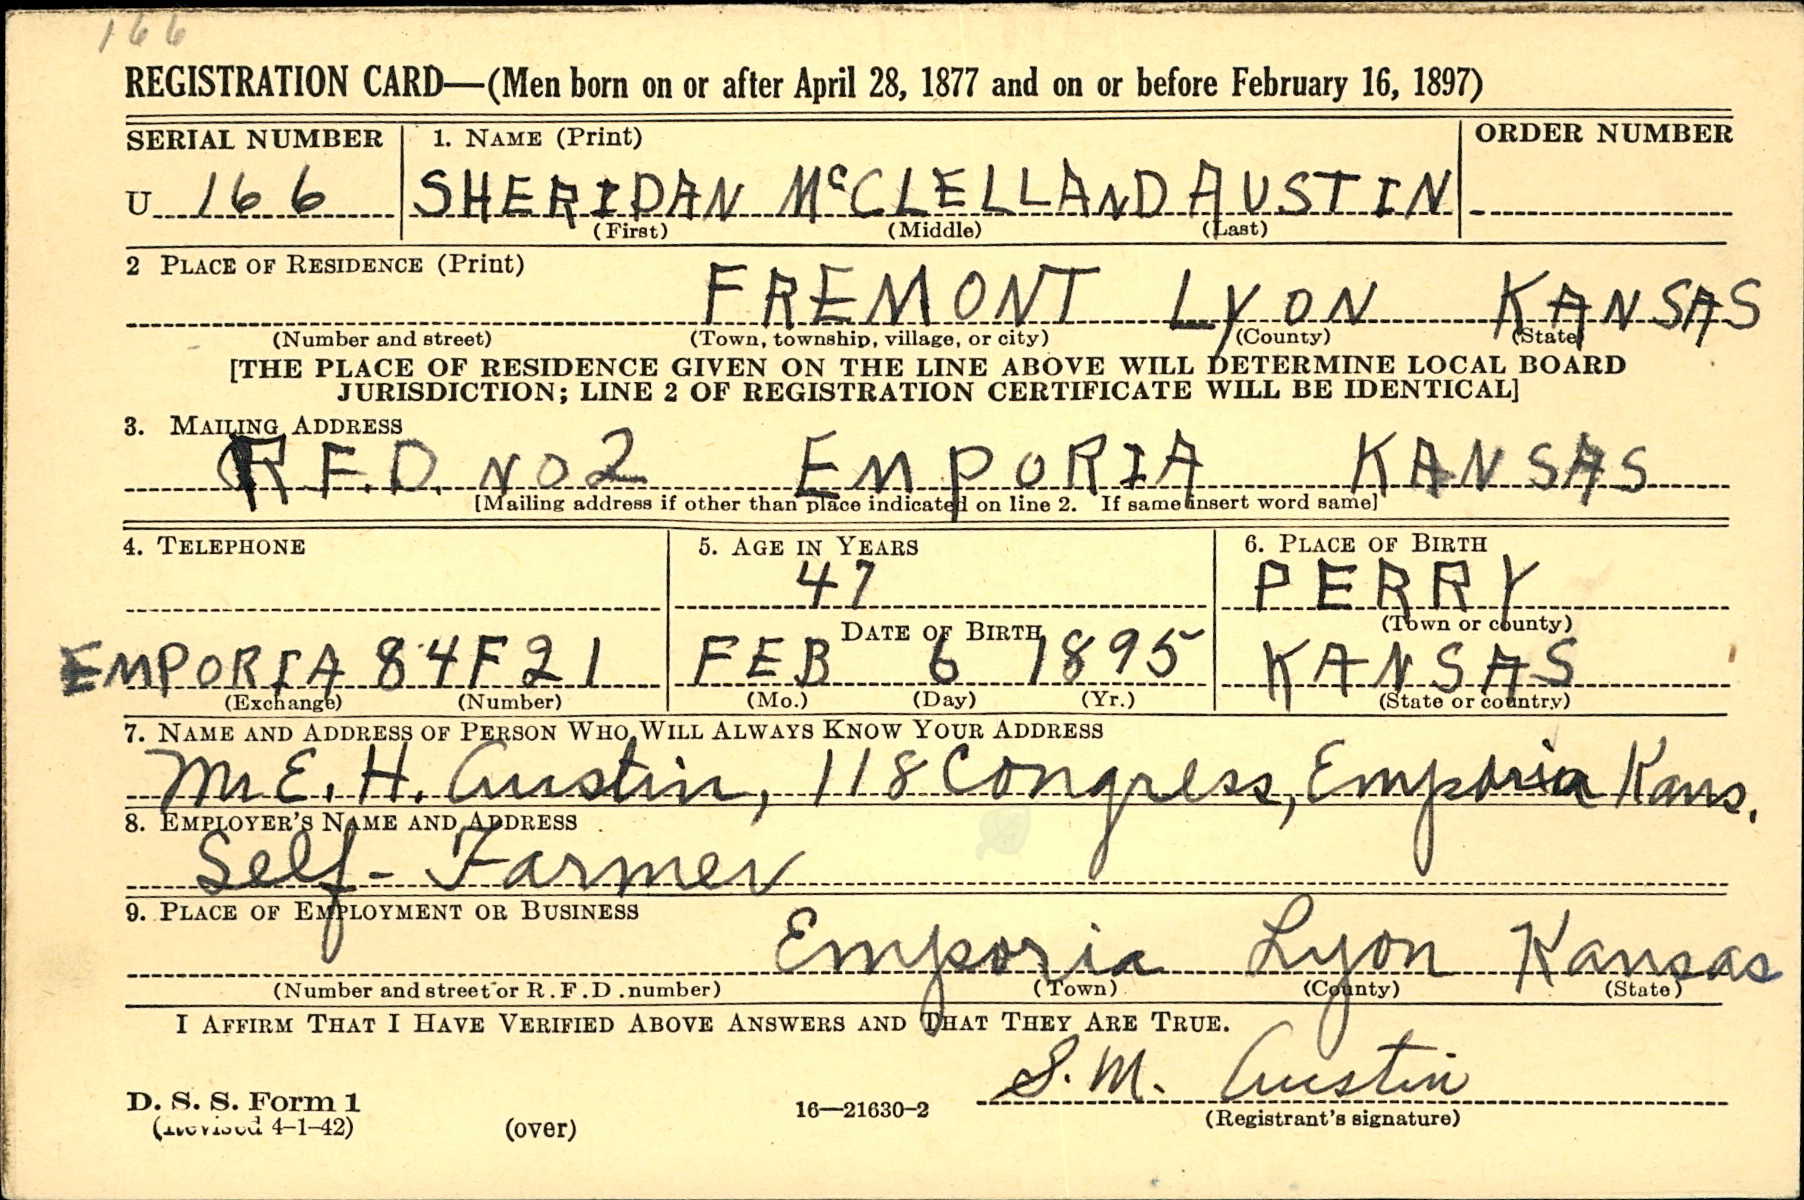 166
REGISTRATION CARD—(Men born on or after April 28, 1877 and on or before February 16, 1897)
SERIAL NUMBER 1. NAME (Print) ORDER NUMBER
U 166 SHERIDAN McCLELLAND AUSTIN
(First) (Middle) (Last)
2 PLACE OF RESIDENCE (Print)
FREMONT LYON KANSAS
(Number and street) (Town, township, village, or city) (County) (State)
[THE PLACE OF RESIDENCE GIVEN ON THE LINE ABOVE WILL DETERMINE LOCAL BOARD
JURISDICTION; LINE 2 OF REGISTRATION CERTIFICATE WILL BE IDENTICAL]
3. MAILING ADDRESS
R.F.D. NO 2 EMPORIA KANSAS
[Mailing address if other than place indicated on line 2. If same insert word same]
4. TELEPHONE 5. AGE IN YEARS 6. PLACE OF BIRTH
47 PERRY
DATE OF BIRTH (Town or county)
EMPORIA 84F21 FEB 6 1895 KANSAS
(Exchange) (Number) (Mo.) (Day) (Yr.) (State or country)
7. NAME AND ADDRESS OF PERSON WHO WILL ALWAYS KNOW YOUR ADDRESS
Mr E. H. Austin, 118 Congress, Emporia Kans.
8. EMPLOYER'S NAME AND ADDRESS
Self - Farmer
9. PLACE OF EMPLOYMENT OR BUSINESS
Emporia Lyon Kansas
(Number and street or R.F.D. number) (Town) (County) (State)
I AFFIRM THAT I HAVE VERIFIED ABOVE ANSWERS AND THAT THEY ARE TRUE.
S. M. Austin
D. S. S. Form 1
(Revised 4-1-42) (over) 16—21630-2 (Registrant's signature)